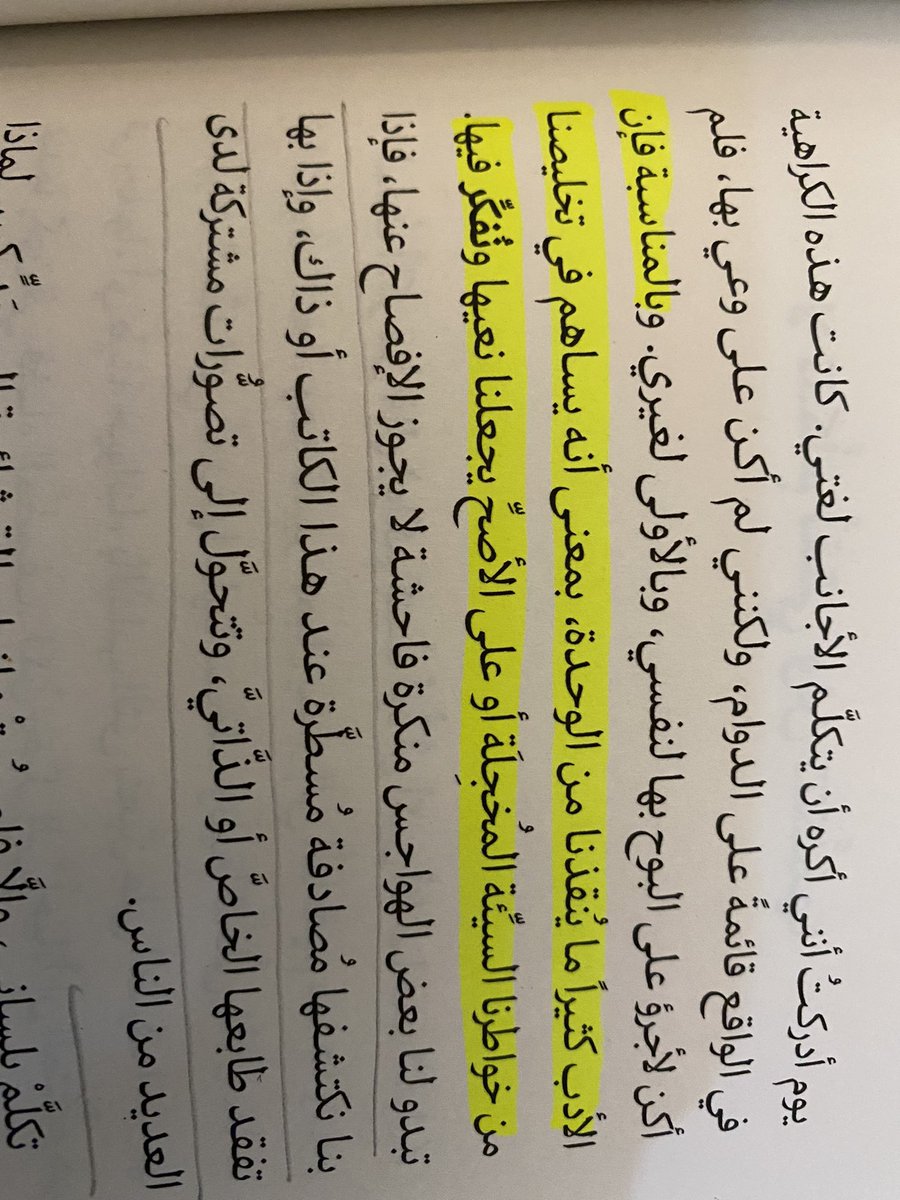 يوم أدركتُ أنني أكره أن يتكلَّم الأجانب لغتي. كانت هذه الكراهية
في الواقع قائمةً على الدوام، ولكنني لم أكن على وعي بها، فلم
أكن لأجرؤ على البوح بها لنفسي، وبالأولى لغيري. وبالمناسبة فإن
الأدب كثيراً ما يُنقذنا من الوحدة، بمعنى أنه يساهم في تخليصنا
من خواطرنا السيَّئة المُخجِلَة أو على الأصحّ يجعلنا نعيها ونُفكَّر فيها.
تبدو لنا بعض الهواجس منكرة فاحشة لا يجوز الإفصاح عنها، فإذا
بنا نكتشفها مُصادفةً مُسطَّرة عند هذا الكاتب أو ذاك، وإذا بها
تفقد طابعها الخاصَّ أو الذَّاتيَّ، وتتحوَّل إلى تصوُّرات مشتركة لدى
العديد من الناس.
تكلَّمْ بلساني، وإلَّا لماذا